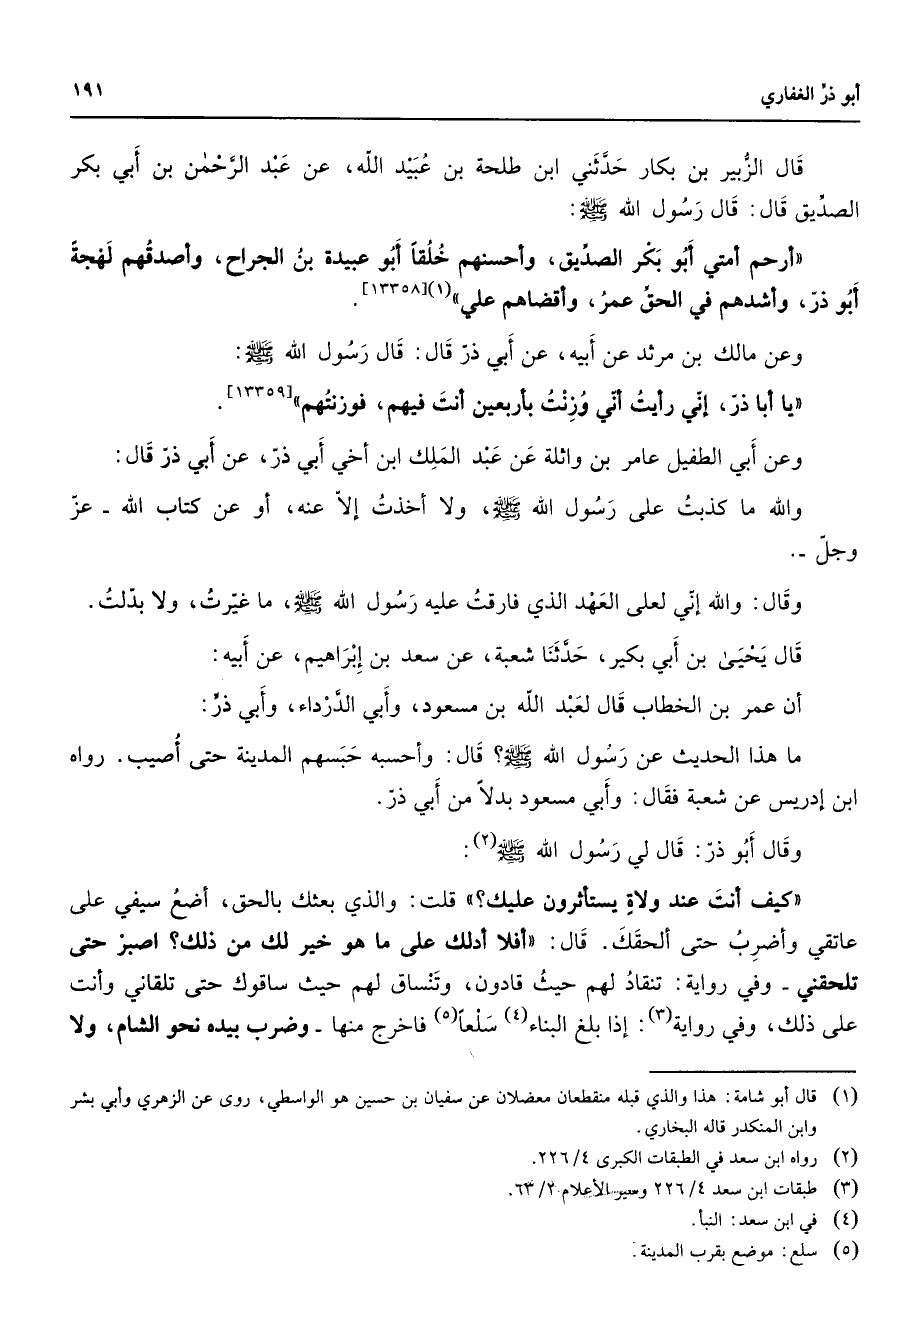 أبو ذرّ الغفاري ١٩١
قَال الزُّبير بن بكار حَدَّثَني ابن طلحة بن عُبَيْد اللّه، عن عَبْد الرَّحْمٰن بن أَبي بكر
الصدِّيق قَال: قَال رَسُول الله ﷺ:
«أرحم أمتي أَبُو بَكْر الصدِّيق، وأحسنهم خُلُقاً أَبُو عبيدة بنُ الجراح، وأصدقُهم لَهْجةً
أَبُو ذرّ، وأشدهم في الحقِّ عمرُ، وأقضاهم علي»(١)[١٣٣٥٨].
وعن مالك بن مرثد عن أَبيه، عن أَبي ذرّ قَال: قَال رَسُول الله ﷺ:
«يا أبا ذرّ، إنّي رأيتُ أنّي وُزِنْتُ بأربعين أنتَ فيهم، فوزنتُهم»[١٣٣٥٩].
وعن أَبي الطفيل عامر بن واثلة عَن عَبْد المَلِك ابن أخي أَبي ذرّ، عن أَبي ذرّ قَال:
والله ما كذبتُ على رَسُول الله ﷺ، ولا أخذتُ إلاّ عنه، أو عن كتاب الله ـ عزّ
وجلّ ـ.
وقَال: والله إنّي لعلى العَهْد الذي فارقتُ عليه رَسُول الله ﷺ، ما غيّرتُ، ولا بدّلتُ.
قَال يَحْيَىٰ بن أَبي بكير، حَدَّثَنَا شعبة، عن سعد بن إِبْرَاهيم، عن أَبيه:
أن عمر بن الخطاب قَال لعَبْد اللّه بن مسعود، وأَبي الدَّرْداء، وأَبي ذرٍّ:
ما هذا الحديث عن رَسُول الله ﷺ؟ قَال: وأحسبه حَبَسهم المدينة حتى أُصيب. رواه
ابن إدريس عن شعبة فقَال: وأَبي مسعود بدلاً من أَبي ذرّ.
وقَال أَبُو ذرّ: قَال لي رَسُول الله ﷺ(٢):
«كيف أنتَ عند ولاةٍ يستأثرون عليك؟» قلت: والذي بعثك بالحق، أضعُ سيفي على
عاتقي وأضرِبُ حتى ألحقَكَ. قَال: «أفلا أدلك على ما هو خير لك من ذلك؟ اصبرْ حتى
تلحقني ـ وفي رواية: تنقادُ لهم حيثُ قادون، وتَنْساق لهم حيث ساقوك حتى تلقاني وأنت
على ذلك، وفي رواية(٣): إذا بلغ البناء(٤) سَلْعاً(٥) فاخرج منها ـ وضرب بيده نحو الشام، ولا
(١) قال أبو شامة: هذا والذي قبله منقطعان معضلان عن سفيان بن حسين هو الواسطي، روى عن الزهري وأبي بشر
وابن المنكدر قاله البخاري.
(٢) رواه ابن سعد في الطبقات الكبرى ٤/ ٢٢٦.
(٣) طبقات ابن سعد ٤/ ٢٢٦ وسير الأعلام ٢/ ٦٣.
(٤) في ابن سعد: النبأ.
(٥) سلع: موضع بقرب المدينة.